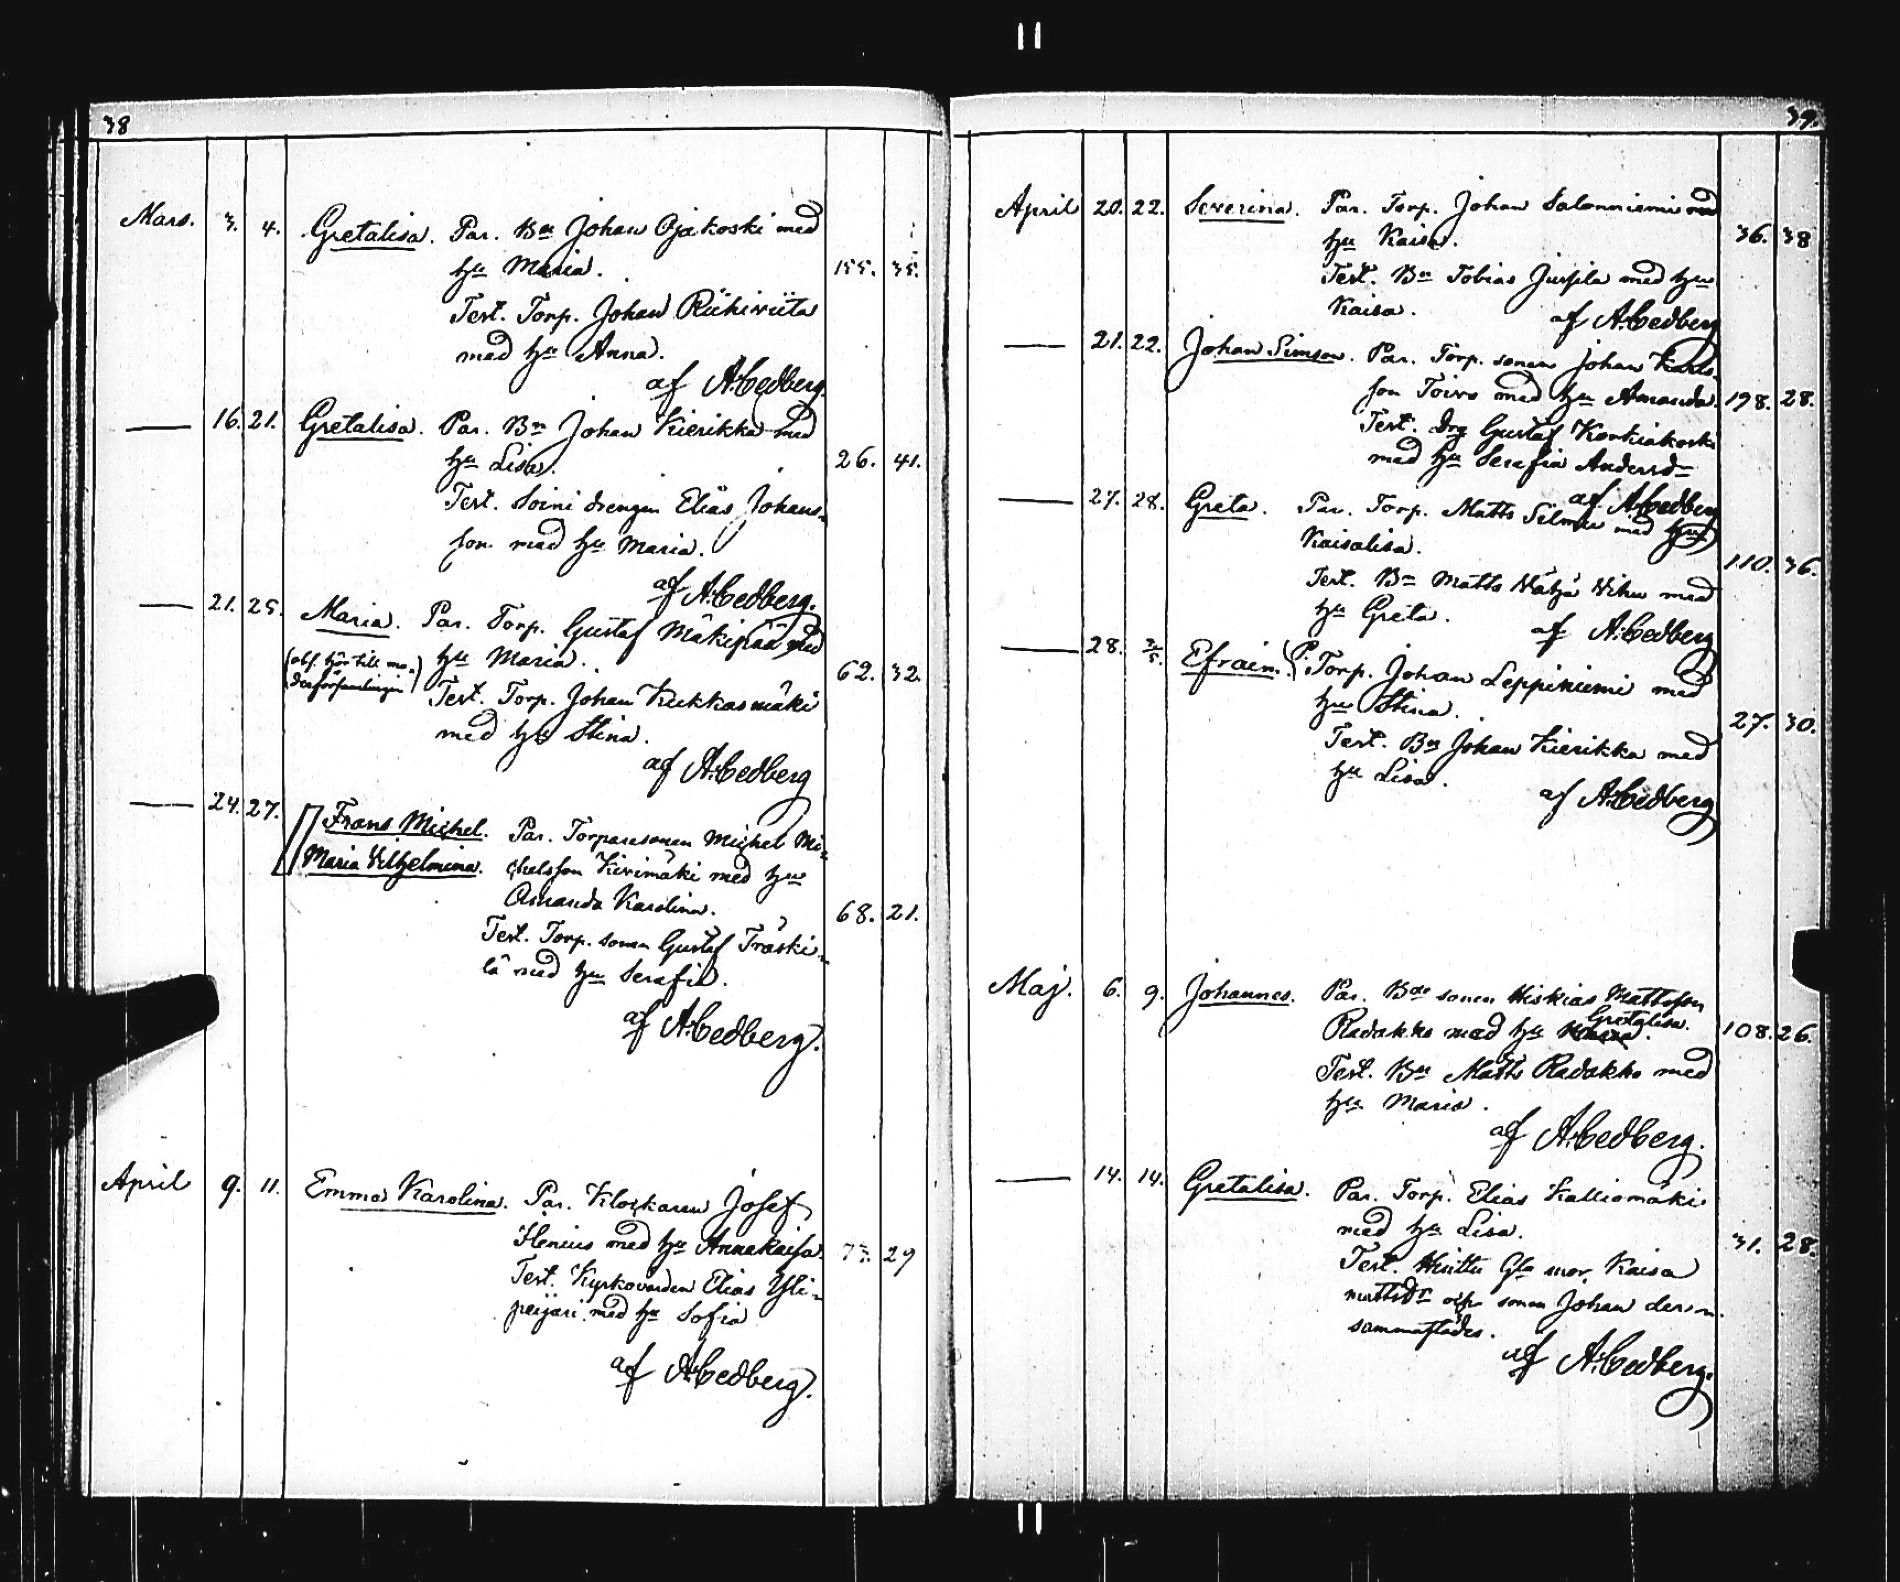 38
Mars. 3. 4. Gretalisa. Par. Bn Johan Ojakoski med
hu Maria. 155. 35.
Test. Torp. Johan Riihiviita
med hu Anna.
af A. Cedberg.
— 16. 21. Gretalisa. Par. Bn Johan Kierikka med
hu Lisa. 26. 41.
Test. Soini drengen Elias Johans-
son med hu Maria.
af A. Cedberg.
— 21. 25. Maria. Par. Torp. Gustaf Mäkipää med
(obs. hör till mo-
derförsamlingen)
hu Maria. 62. 32.
Test. Torp. Johan Kukkasmäki
med hu Stina.
af A. Cedberg
— 24. 27. Frans Michel. Par. Torparesonen Michel Mi-
Maria Vilhelmina. chelsson Kivimäki med hu
Amanda Karolina. 68. 21.
Test. Torp. sonen Gustaf Träski-
lä med hu Serafia.
af A. Cedberg.
April 9. 11. Emma Karolina. Par. Klockaren Josef
Henius med hu Annakaisa. 73. 29
Test. Kyrkovärden Elias Yli-
peijari med hu Sofia
af A. Cedberg.
39.
April 20. 22. Severina. Par. Torp. Johan Salonniemi med
hu Kaisa. 36. 38
Test. Bn Tobias Jussila med hu
Kaisa.
af A. Cedberg
— 21. 22. Johan Simson. Par. Torp. sonen Johan Karls-
son Toivo med hu Amanda. 198. 28.
Test. Drg Gustaf Korkiakoski
med hu Serafia Andersdr
af A. Cedberg
— 27. 28. Greta. Par. Torp. Matts Silmu med hu
Kaisalisa. 110. 36.
Test. Bn Matts Wihu med
hu Greta.
af A. Cedberg
— 28. 2/5. Efraim. P. Torp. Johan Leppiniemi med
hu Stina. 27. 30.
Test. Bn Johan Kierikka med
hu Lisa.
af A. Cedberg
Maj. 6. 9. Johannes. Par. Bde sonen Hiskias Mattsson
Gretalisa.
Radakko med hu Maria. 108. 26.
Test. Bn Matts Radakko med
hu Maria.
af A. Cedberg.
— 14. 14. Gretalisa. Par. Torp. Elias Kalliomäki
med hu Lisa. 31. 28.
Test. Gla mor. Kaisa
Mattsdr och sonen Johan der-
sammastädes.
af A. Cedberg.